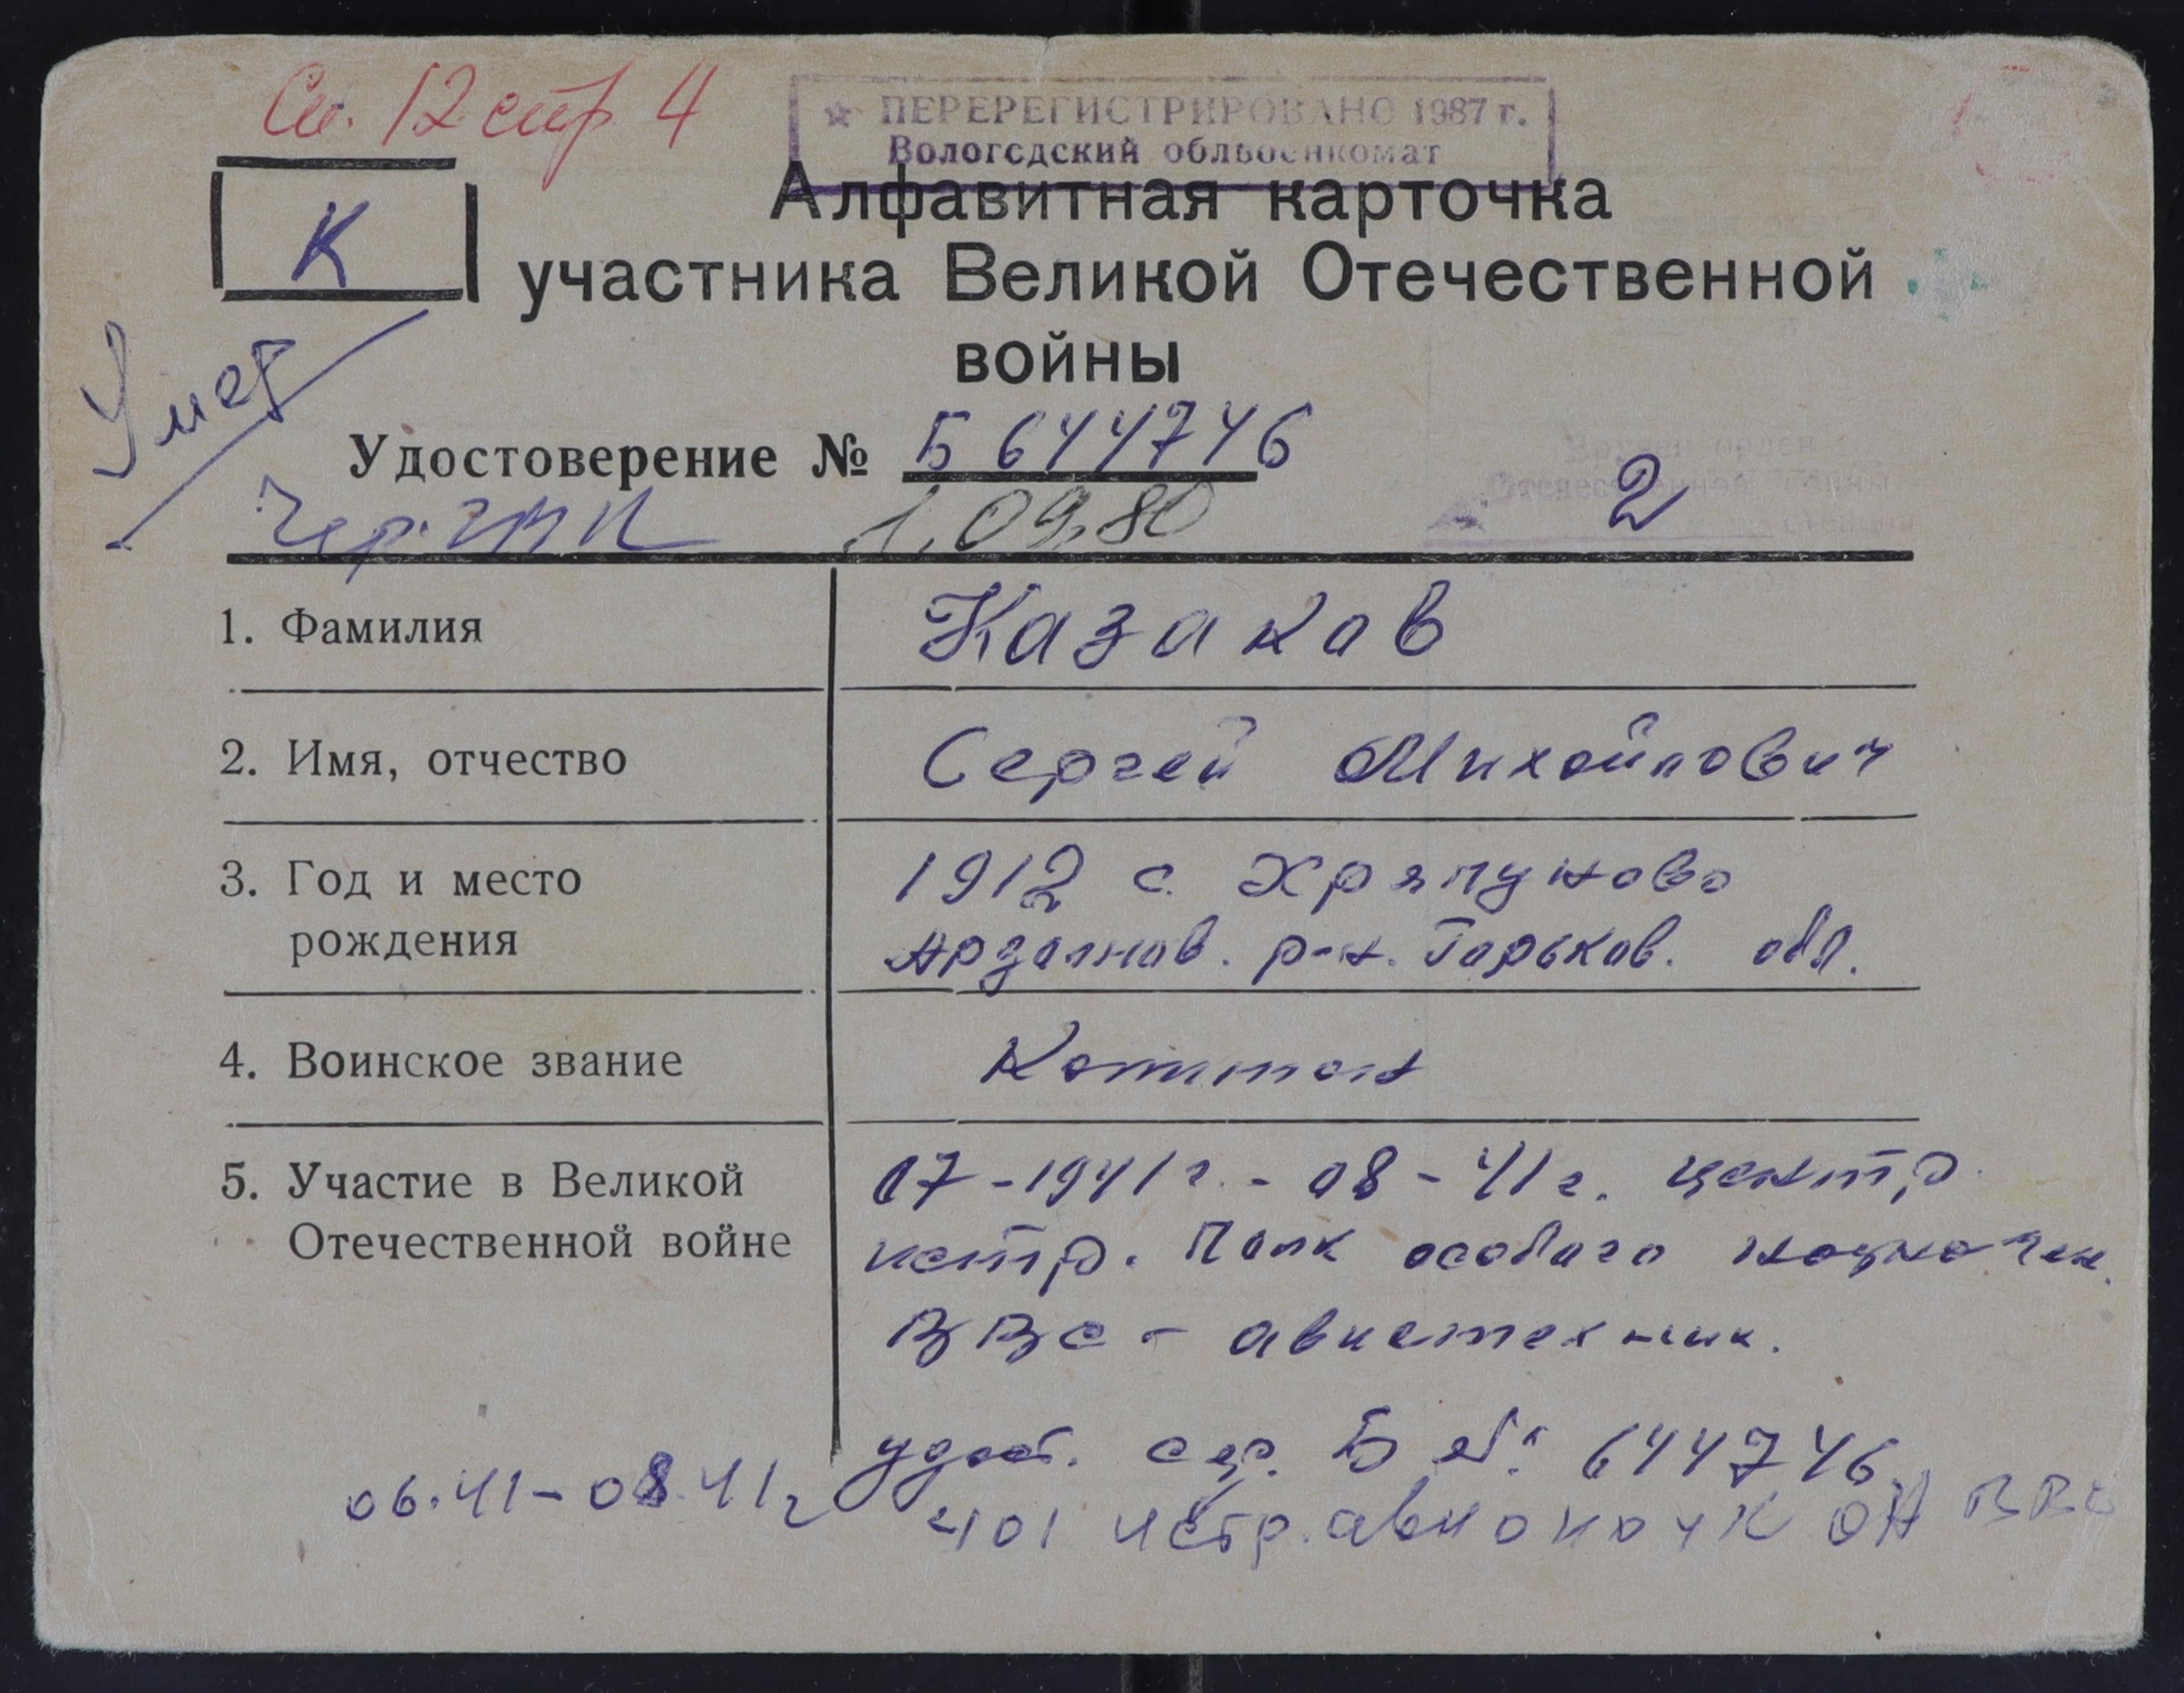 См. 12 стр. 4
ПЕРЕРЕГИСТРИРОВАНО 1987 г.
Вологодский облвоенкомат
К
Алфавитная карточка
участника Великой Отечественной
войны
Умер
Удостоверение № Б 644746
1.09.80
2
1. Фамилия Казаков
2. Имя, отчество Сергей Михайлович
3. Год и место 1912 с. Хрипуново
рождения Ардатов. р-н. Горьков. обл.
4. Воинское звание Капитан
5. Участие в Великой 07-1941 г. - 08-41 г. центр.
Отечественной войне истр. полк особого назначен.
ВВС - авиатехник.
удост. сер. Б № 644746
06.41-08.41 г 401 истр. авиаполк ОН ВВС